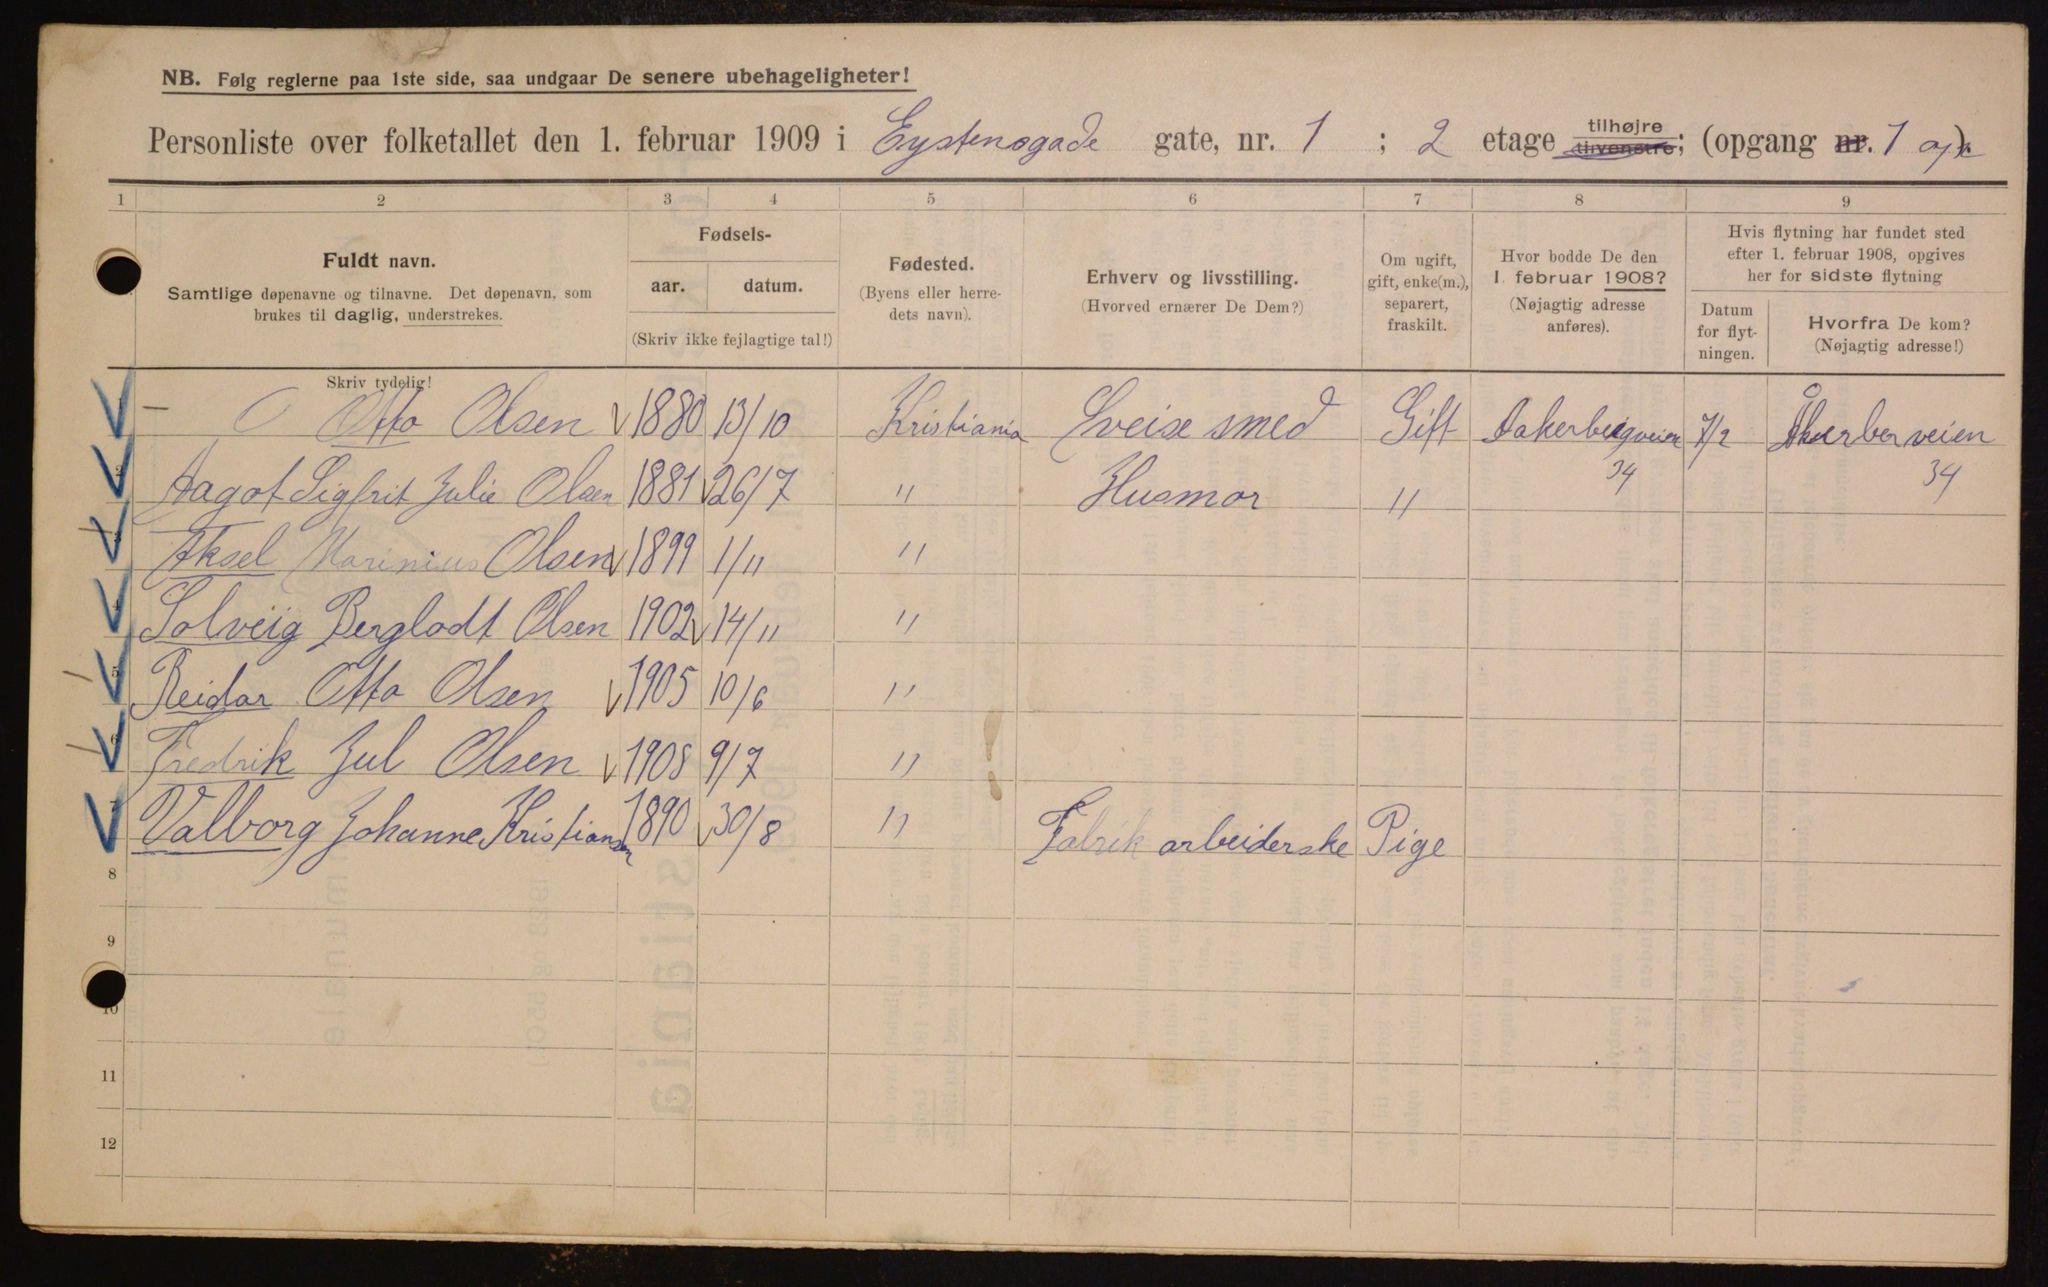 NB. Følg reglerne paa 1ste side, saa undgaar De senere ubehageligheter!
Personliste over folketallet den 1. februar 1909 i Eystensgade gate, nr. 1 ; 2 etage tilhøjre tilvenstre; (opgang nr. 1 op).
1 2 3 4 5 6 7 8 9
Fuldt navn.
Samtlige døpenavne og tilnavne. Det døpenavn, som
brukes til daglig, understrekes.
Skriv tydelig!
Fødsels-
aar. datum.
(Skriv ikke fejlagtige tal!)
Fødested.
(Byens eller herre-
dets navn).
Erhverv og livsstilling.
(Hvorved ernærer De Dem?)
Om ugift,
gift, enke(m.),
separert,
fraskilt.
Hvor bodde De den
1. februar 1908?
(Nøjagtig adresse
anføres).
Hvis flytning har fundet sted
efter 1. februar 1908, opgives
her for sidste flytning
Datum
for flyt-
ningen.
Hvorfra De kom?
(Nøjagtig adresse!)
1 Otto Olsen 1880 13/10 Kristiania Sveise smed Gift Aakerbergveien 34 7/2 Åkerberveien 34
2 Aagot Sigfrit Julie Olsen 1881 26/7 " Husmor "
3 Aksel Marinius Olsen 1899 1/11 "
4 Solveig Berglodt Olsen 1902 14/11 "
5 Reidar Otto Olsen 1905 10/6 "
6 Fredrik Jul Olsen 1908 9/7 "
7 Valborg Johanne Kristiansen 1890 30/8 " Fabrik arbeiderske Pige
8
9
10
11
12